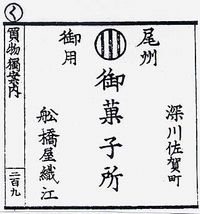 深川佐賀町
尾州
御用
御菓子所
舩橋屋織江
く
買物獨案内
二百九